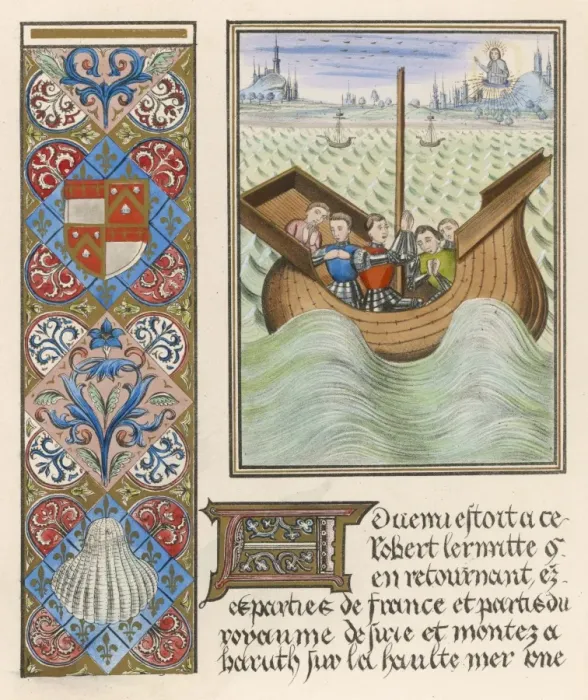 ADuenu estoit a ce-
Robert lermitte q-
en retournant, ez-
es parties de france et partis du
royaume de surie et montez a
baruth sur la haulte mer one